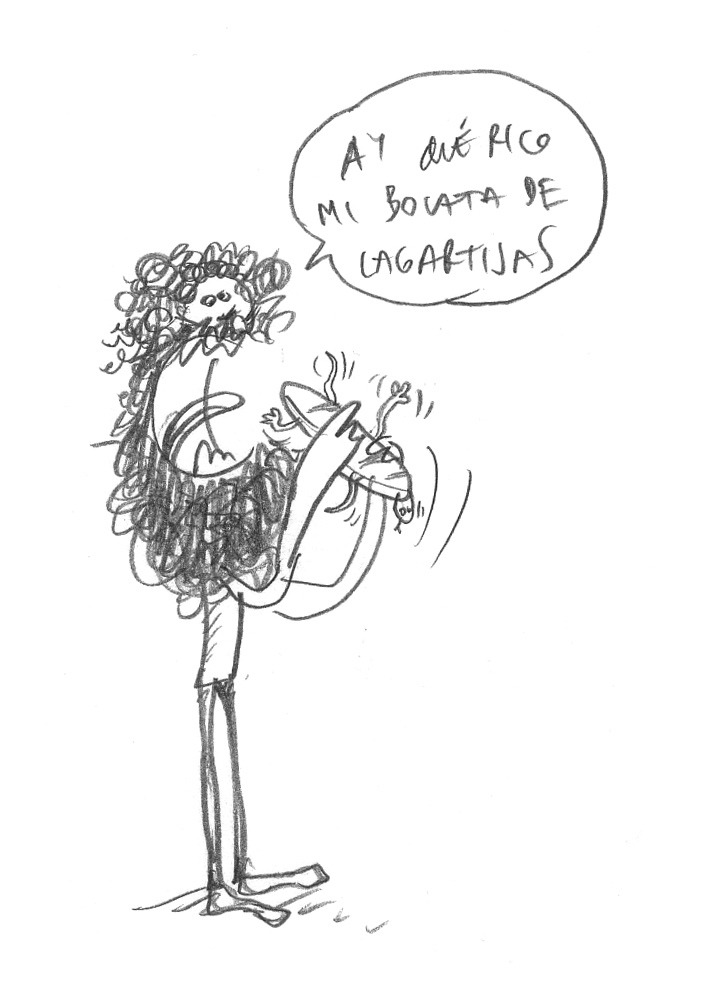 AY QUÉ RICO
MI BOCATA DE
LAGARTIJAS